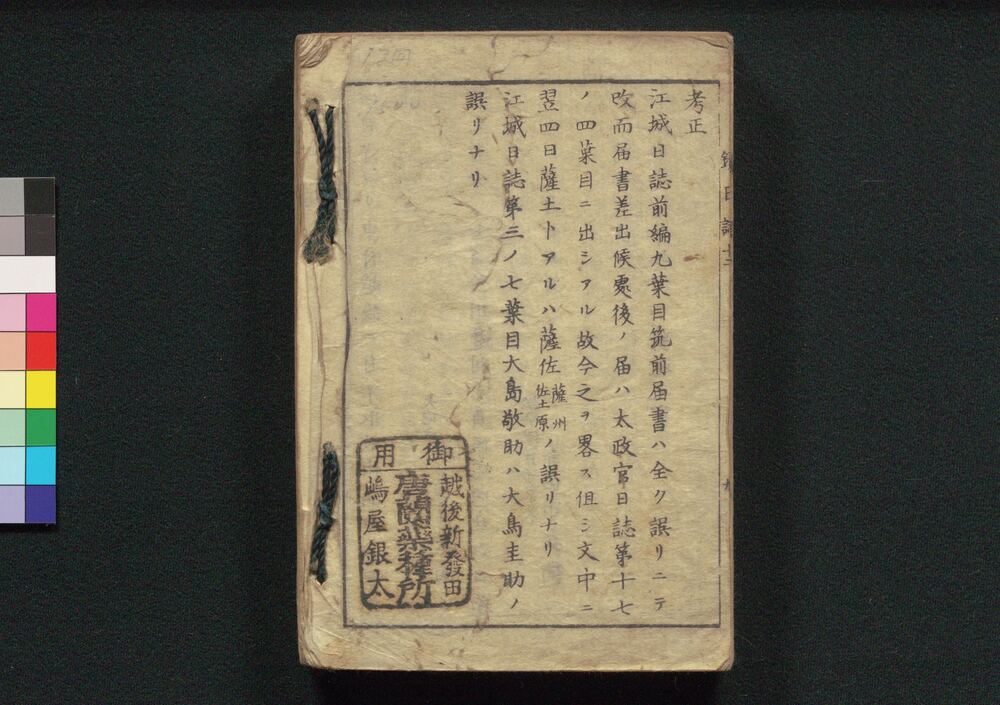 考正
江城日誌前編九葉目筑前届書ハ全ク誤リニテ
改而届書差出候処後ノ届ハ太政官日誌第十七
ノ四葉目ニ出シアル故今之ヲ畧ス伹シ文中ニ
翌四日薩土トアルハ薩佐薩州佐土原ノ誤リナリ
江城日誌第三ノ七葉目大島敬助ハ大鳥圭助ノ
誤リナリ
御用
越後新發田
唐蘭薬種所
嶋屋銀太
日誌
九